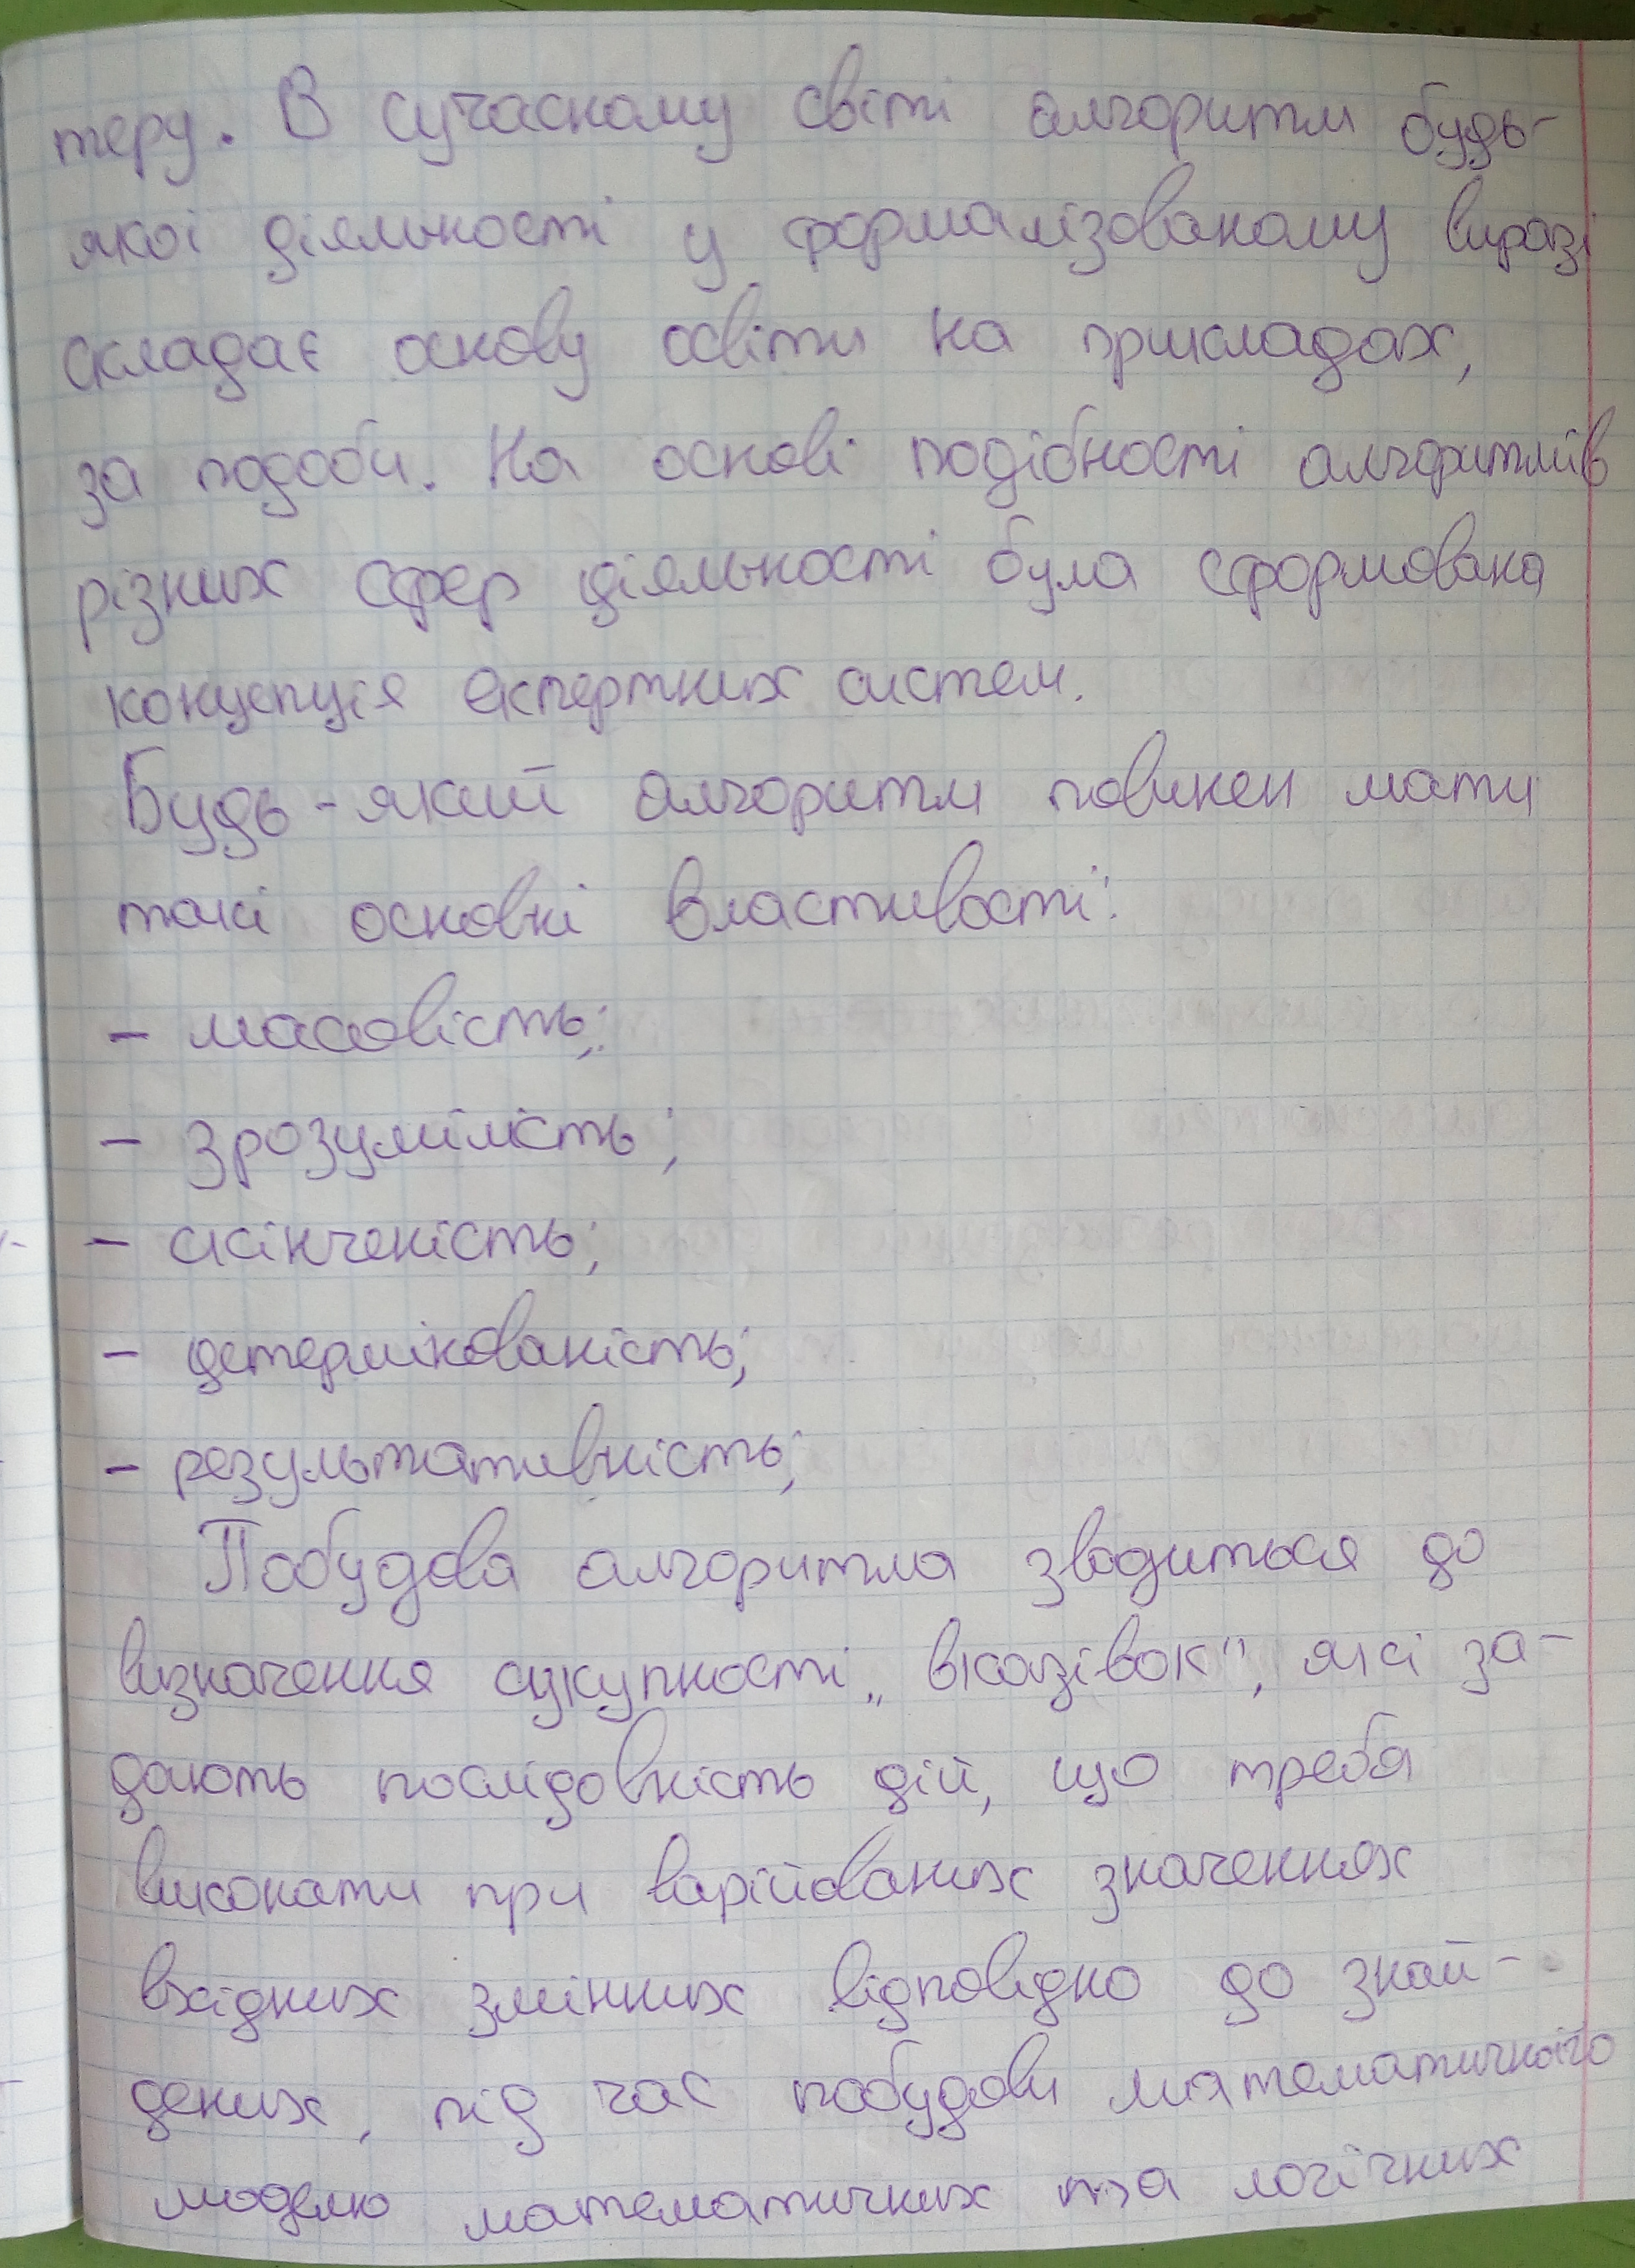 теру. В сучасному світі алгоритм будь-
якої діяльності у формалізованому виразі
складає основу освіти на прикладах,
за подоби. На основі подібності алгоритмів
різних сфер діяльності була сформована
концепція експертних систем.
Будь-який алгоритм повинен мати
такі основні властивості:
- масовість;
- зрозумілість;
- скінченість;
- детермінованість;
- результативність;
Побудова алгоритма зводиться до
визначення сукупності „вказівок", які за-
дають послідовність дій, що треба
виконати при варійованих значеннях
вхідних змінних відповідно до знай-
дених, під час побудови математичного
моделю математичних та логічних